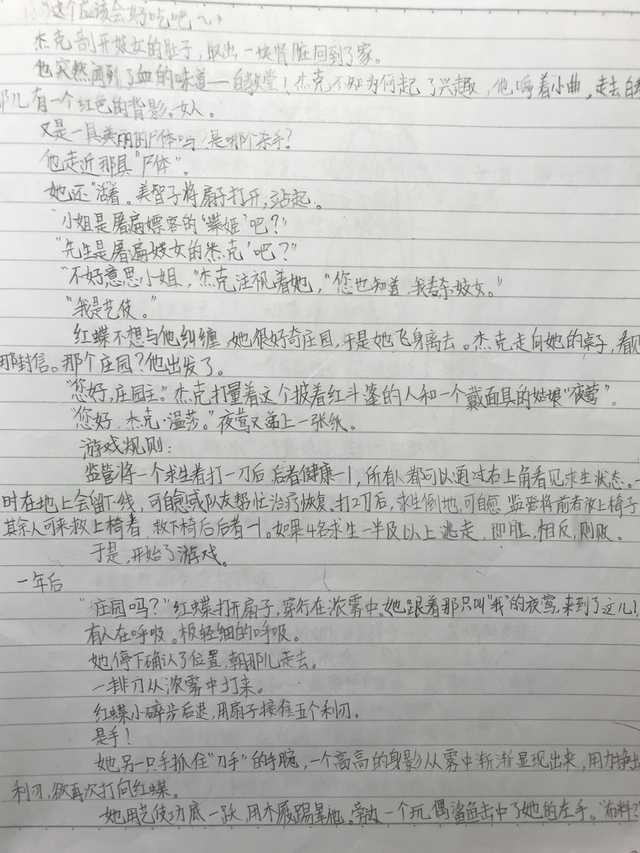 "这个应该会好吃吧
杰克剖开妓女的肚子，取出一块肾脏回到了家。
他突然闻到了血的味道——自教堂！杰克不知为何起了兴趣，他哼着小曲，走去
那儿有一个红色的背影。女人。
又是一具美丽的尸体吗？是哪个杀手？
他走近那具"尸体"。
她还"活着。美智子将扇子打开，站起。
"小姐是屠遍嫖客的'蝶姬'吧？"
"先生是屠遍妓女的'杰克'吧？"
"不好意思小姐，"杰克注视着她，"您也知道，我专杀妓女。"
"我是艺伎。"
红蝶不想与他纠缠，她很好奇庄园，于是她飞身离去。杰克走向她的桌子，看见
那封信。那个庄园？他出发了。
"您好，庄园主。"杰克打量着这个披着红斗篷的人和一个戴面具的姑娘"夜莺"。
"您好，杰克·温莎。"夜莺又递上一张纸。
游戏规则：
监管将一个求生者打一刀后，后者健康-1，所有人都可以通过右上角看见求生状态。一
时在地上会留下线，可自愈或队友帮忙治疗恢复。打2刀后，求生倒地，可自愈，监管将前者放上椅子
其余人可来救上椅者，救下椅后后者-1。如果4名求生一半及以上逃走，即胜，相反，则败。
于是，开始了游戏。
一年后
"庄园吗？"红蝶打开扇子，穿行在浓雾中。她跟着那只叫"我"的夜莺，来到了这儿！
有人在呼吸。极轻细的呼吸。
她停下确认了位置，朝那儿走去。
一排刀从浓雾中打来。
红蝶小碎步后退，用扇子接住五个利刃。
是手！
她另一只手抓住"刀手"的手腕，一个高高的身影从雾中渐渐显现出来，用力抽出
利刃，欲再次打向红蝶。
她用艺伎功底一跃，用木屐踢晕他。旁边一个玩偶鲨鱼击中了她的左手。